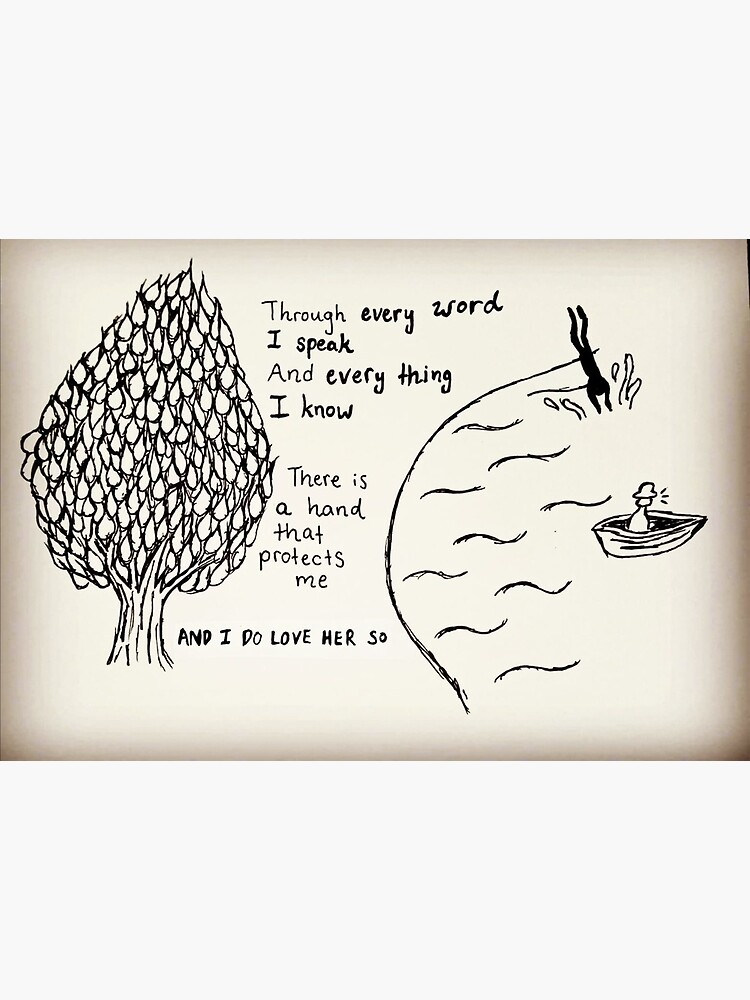 Through every word
I speak
And every thing
I know
There is
a hand
that
protects
me
AND I DO LOVE HER SO